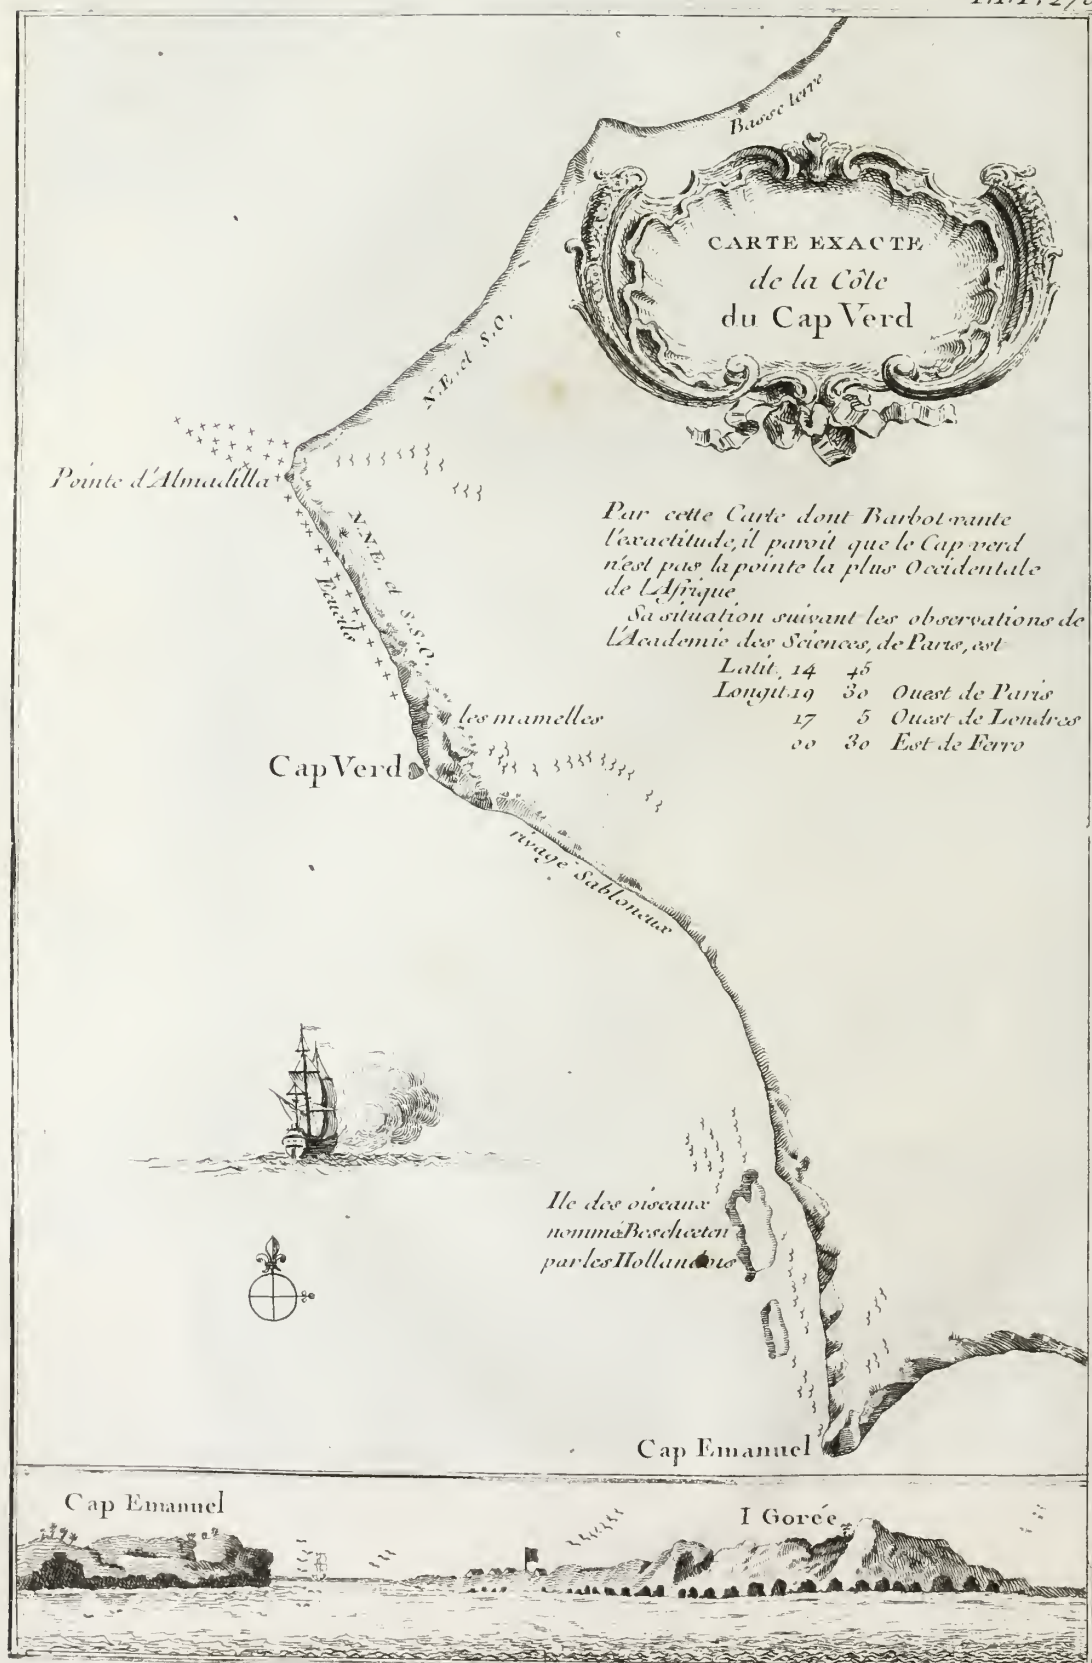 Basse terre
CARTE EXACTE
de la Côte
du Cap Verd
N.E. et S.O.
Pointe d'Almadilla
N.N.E. et S.S.O.
Ecueils
Par cette Carte dont Barbot vante
l'exactitude, il paroit que le Cap verd
n'est pas la pointe la plus Occidentale
de l'Afrique
Sa situation suivant les observations de
l'Academie des Sciences, de Paris, est
Latit. 14 45
Longit. 19 30 Ouest de Paris
17 5 Ouest de Londres
00 30 Est de Ferro
les mamelles
Cap Verd
rivage Sabloneux
Ile des oiseaux
nommé Bescheeten
par les Hollandois
Cap Emanuel
Cap Emanuel
I Gorée